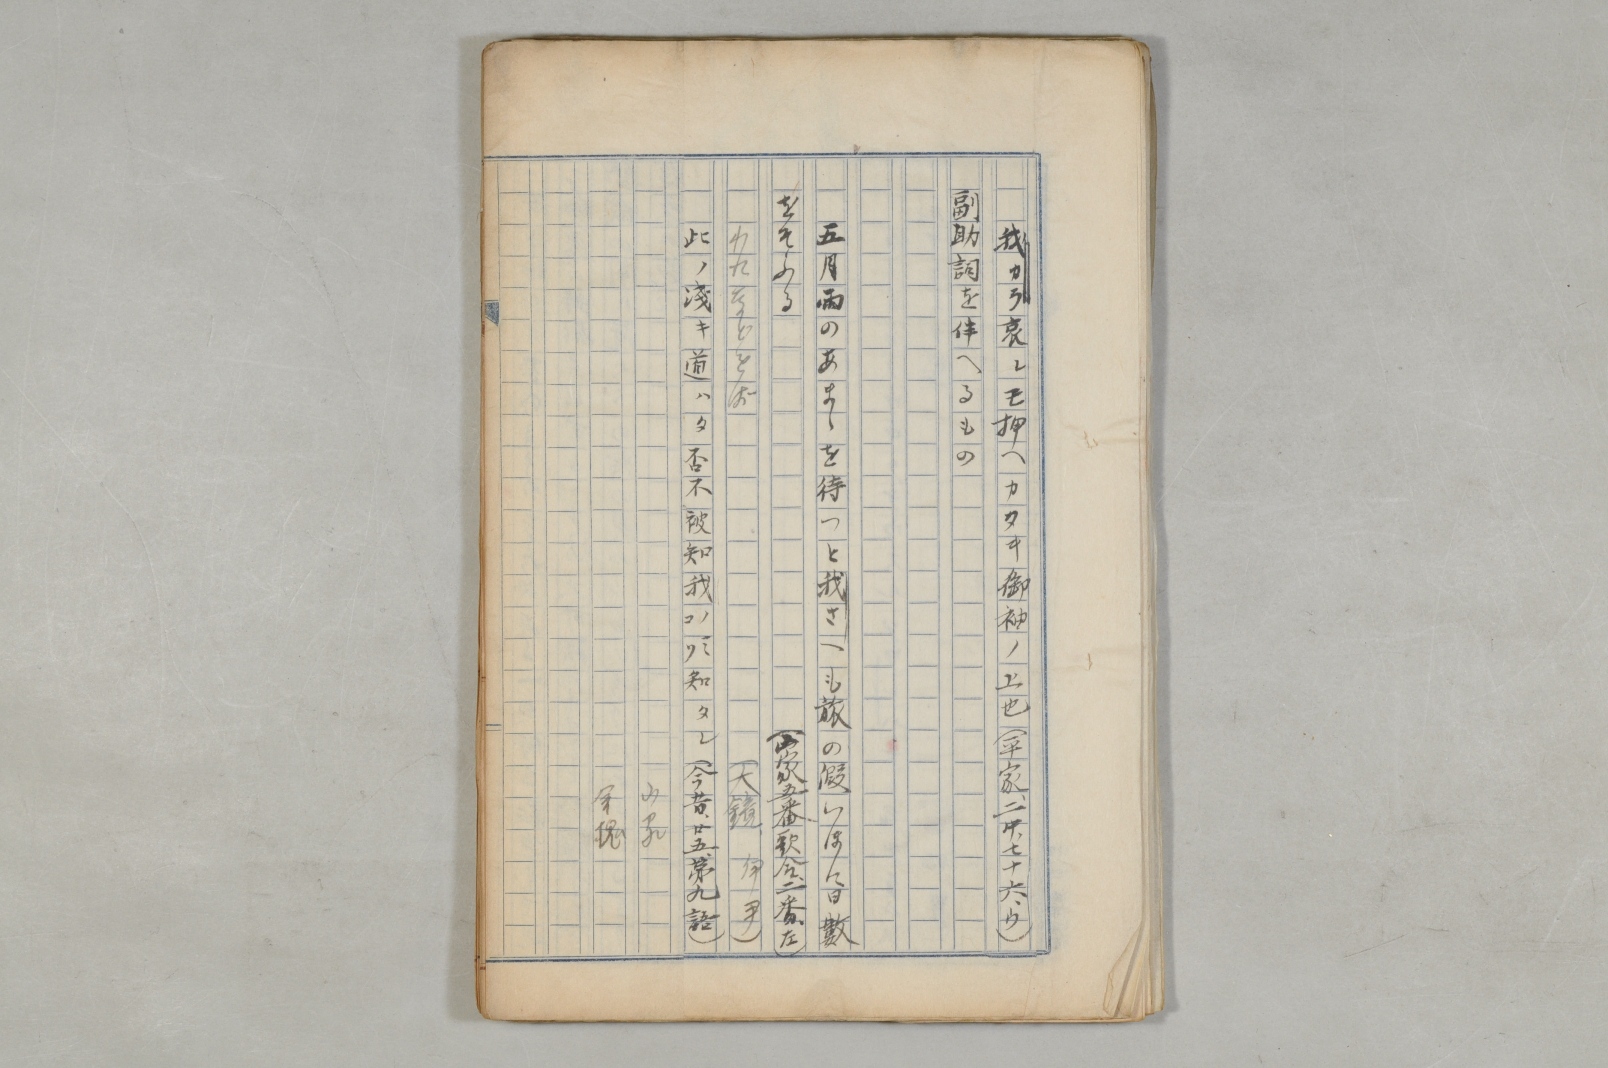 我カラ哀レモ押ヘカタキ御袖ノ上也（平家、二中、七十六、ウ）
副助詞を伴へるもの
五月雨のあまゝを待つと我さへも旅の假いほに日數
をそふる（山家五番歌合、二番、左）
われなどをば（大鏡 伊尹）
此ノ淺キ道ハタ否不被知我コソ知タレ（今昔、廿五、第九語）
山家
金槐